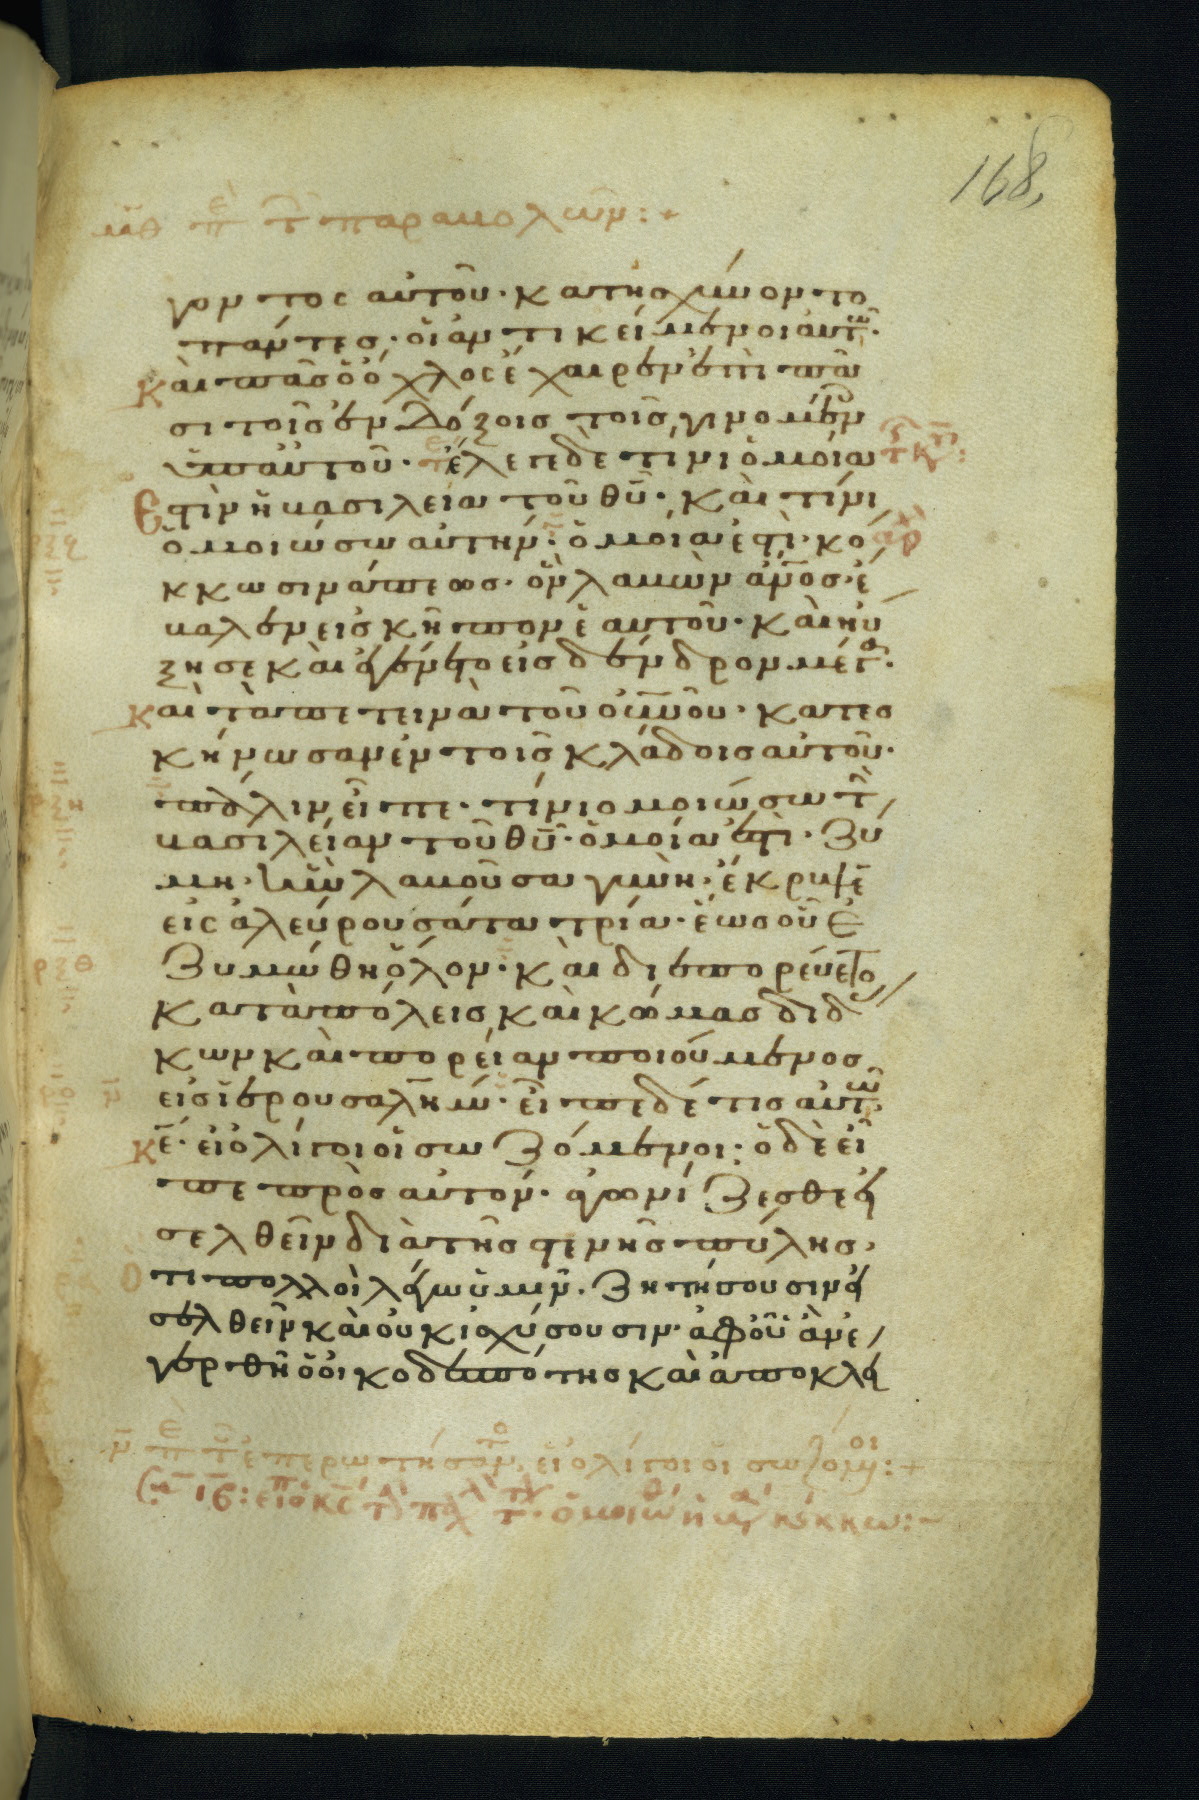 168,
μθ π τ παραβολων:+
γοντος αὐτοῦ· κατησχύνοντο
πάντες· οἱ ἀντικείμενοι αὐτῶ·
Καὶ πᾶς ὁ ὄχλος ἔχαιρεν ἐπὶ πᾶ
σι τοῖς ἐνδόξοις τοῖς γινομέν
ὑπ αὐτοῦ· ἔλεγε δὲ τίνι ὁμοία
Ἐστὶν ἡ βασιλεία τοῦ θῦ· καὶ τίνι
ὁμοιώσω αὐτήν· ὁμοία ἐστὶ· κό
κκω σινάπεως· ὃν λαβὼν ἄνος· ἔ
βαλεν εἰς κῆπον ἑαυτοῦ· καὶ ηὔ
ξησε καὶ ἐγένετο εἰς δένδρον μέγα·
Καὶ τὰ πετεινὰ τοῦ οὐνοῦ· κατεσ
κήνωσαν ἐν τοῖς κλάδοις αὐτοῦ·
πάλιν εἶπε· τίνι ὁμοιώσω τὴ
βασιλείαν τοῦ θῦ· ὁμοία ἐστὶ· ζύ
μη· ἣν λαβοῦσα γυνὴ· ἔκρυψε
εἰς ἀλεύρου σάτα τρία· ἕως οὗ ἐ
ζυμώθη ὅλον· καὶ διεπορεύετο
κατὰ πόλεις καὶ κώμας διδά
κων καὶ πορείαν ποιούμενος
εἰς ἱερουσαλήμ· εἶπε δέ τις αὐτῶ
Κε· εἰ ὀλίγοι οἱ σωζόμενοι· ὁ δὲ εἶ
πε πρὸς αὐτόν· ἀγωνίζεσθε εἰ
σελθεῖν διὰ τῆς στενῆς πύλης·
Ὅτι πολλοὶ λέγω ὑμῖν· ζητήσουσιν εἰ
σελθεῖν καὶ οὐκ ἰσχύσουσιν· ἀφ οὗ ἂν ἐ
γερθῆ ὁ οἰκοδεσπότης καὶ ἀποκλεί
ν π τ ἐπερωτήσαν, εἰ ὀλίγοι οἱ σωζόμενοι:+